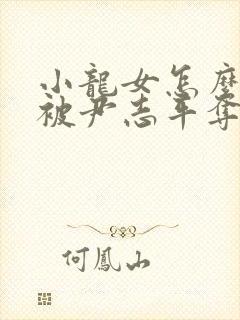 小龍女怎麼
被尹志平奪
何鳳山